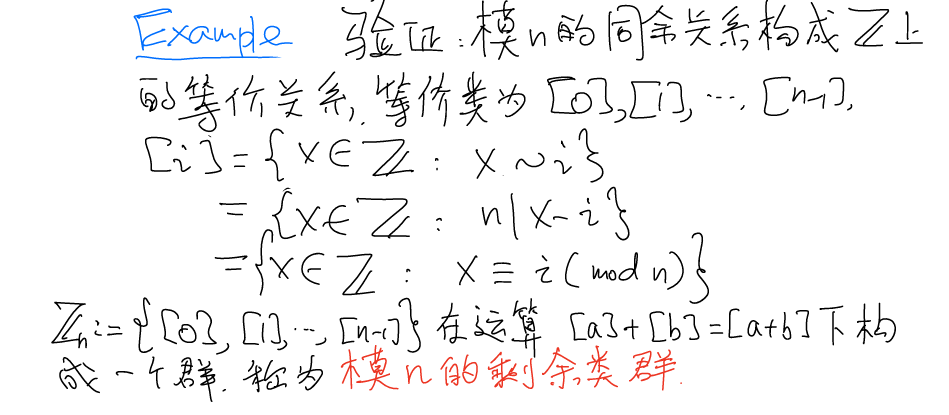 Example 验证:模n的同余关系构成ℤ上
的等价关系,等价类为[0],[1],…,[n-1],
[i]={x∈ℤ: x~i}
={x∈ℤ: n|x-i}
={x∈ℤ: x≡i(mod n)}
ℤₙ:={[0],[1],…,[n-1]}在运算[a]+[b]=[a+b]下构
成一个群.称为模n的剩余类群.